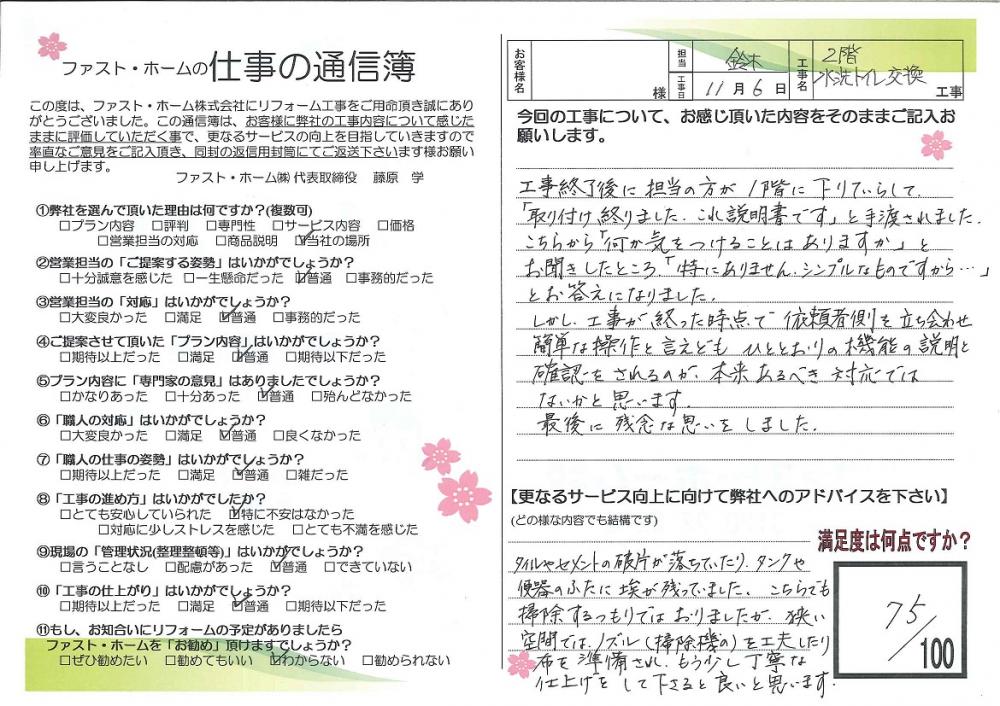 ファスト・ホームの仕事の通信簿
この度は、ファスト・ホーム株式会社にリフォーム工事をご用命頂き誠にあり
がとうございました。この通信簿は、お客様に弊社の工事内容について感じた
ままに評価していただく事で、更なるサービスの向上を目指していきますので
率直なご意見をご記入頂き、同封の返信用封筒にてご返送下さいます様お願い
申し上げます。
ファスト・ホーム㈱ 代表取締役 藤原 学
①弊社を選んで頂いた理由は何ですか？(複数可)
□プラン内容 □評判 □専門性 □サービス内容 □価格
□営業担当の対応 □商品説明 ☑当社の場所
②営業担当の「ご提案する姿勢」はいかがでしょうか？
□十分誠意を感じた □一生懸命だった ☑普通 □事務的だった
③営業担当の「対応」はいかがでしょうか？
□大変良かった □満足 ☑普通 □事務的だった
④ご提案させて頂いた「プラン内容」はいかがでしょうか？
□期待以上だった □満足 ☑普通 □期待以下だった
⑤プラン内容に「専門家の意見」はありましたでしょうか？
□かなりあった □十分あった ☑普通 □殆んどなかった
⑥「職人の対応」はいかがでしょうか？
□大変良かった □満足 ☑普通 □良くなかった
⑦「職人の仕事の姿勢」はいかがでしょうか？
□期待以上だった □満足 ☑普通 □雑だった
⑧「工事の進め方」はいかがでしたか？
□とても安心していられた ☑特に不安はなかった
□対応に少しストレスを感じた □とても不満を感じた
⑨現場の「管理状況(整理整頓等)」はいかがでしょうか？
□言うことなし □配慮があった ☑普通 □できていない
⑩「工事の仕上がり」はいかがでしょうか？
□期待以上だった □満足 ☑普通 □期待以下だった
⑪もし、お知合いにリフォームの予定がありましたら
ファスト・ホームを「お勧め」頂けますでしょうか？
□ぜひ勧めたい □勧めてもいい ☑わからない □勧められない
お客様名 様 担当 鈴木 工事日 11月6日 工事名 2階 水洗トイレ交換 工事
今回の工事について、お感じ頂いた内容をそのままご記入お
願いします。
工事終了後に担当の方が1階に下りていらして、
「取り付け終りました。これ説明書です」と手渡されました。
こちらから「何か気をつけることはありますか」と
お聞きしたところ、「特にありません。シンプルなものですから…」
とお答えになりました。
しかし、工事が終った時点で依頼者側を立ち会わせ
簡単な操作と言えども ひととおりの機能の説明と
確認をされるのが、本来あるべき対応では
ないかと思います。
最後に残念な思いをしました。
【更なるサービス向上に向けて弊社へのアドバイスを下さい】
(どの様な内容でも結構です)
タイルやセメントの破片が落ちていたり、タンクや
便器のふたに埃が残っていました。こちらでも
掃除するつもりではおりましたが、狭い
空間では、ノズル(掃除機の)を工夫したり
布を準備され、もう少し丁寧な
仕上げをして下さると良いと思います。
満足度は何点ですか？
75/100